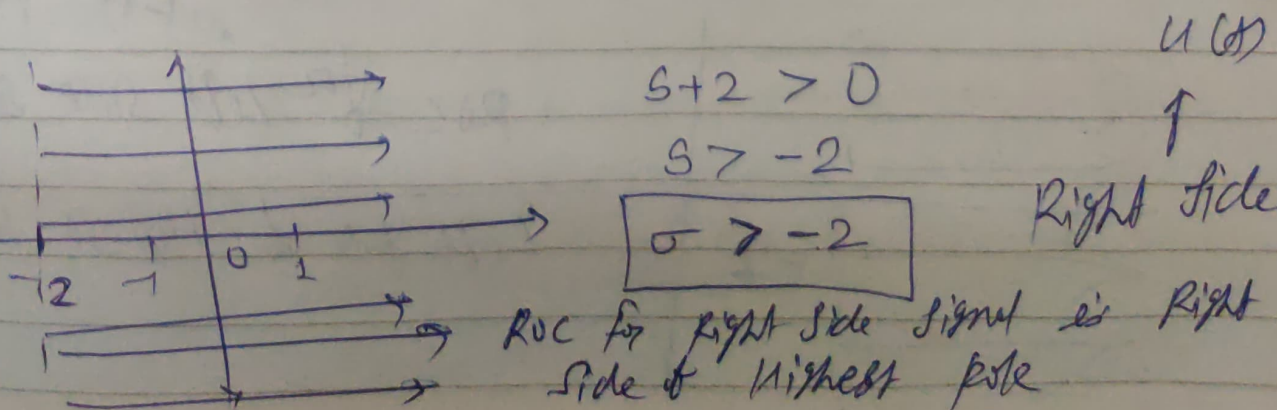 u(t)
↑
Right Side
S+2 > 0
S > -2
σ > -2
-2 -1 0 1
σ
ROC for Right Side Signal is Right
Side of Highest pole